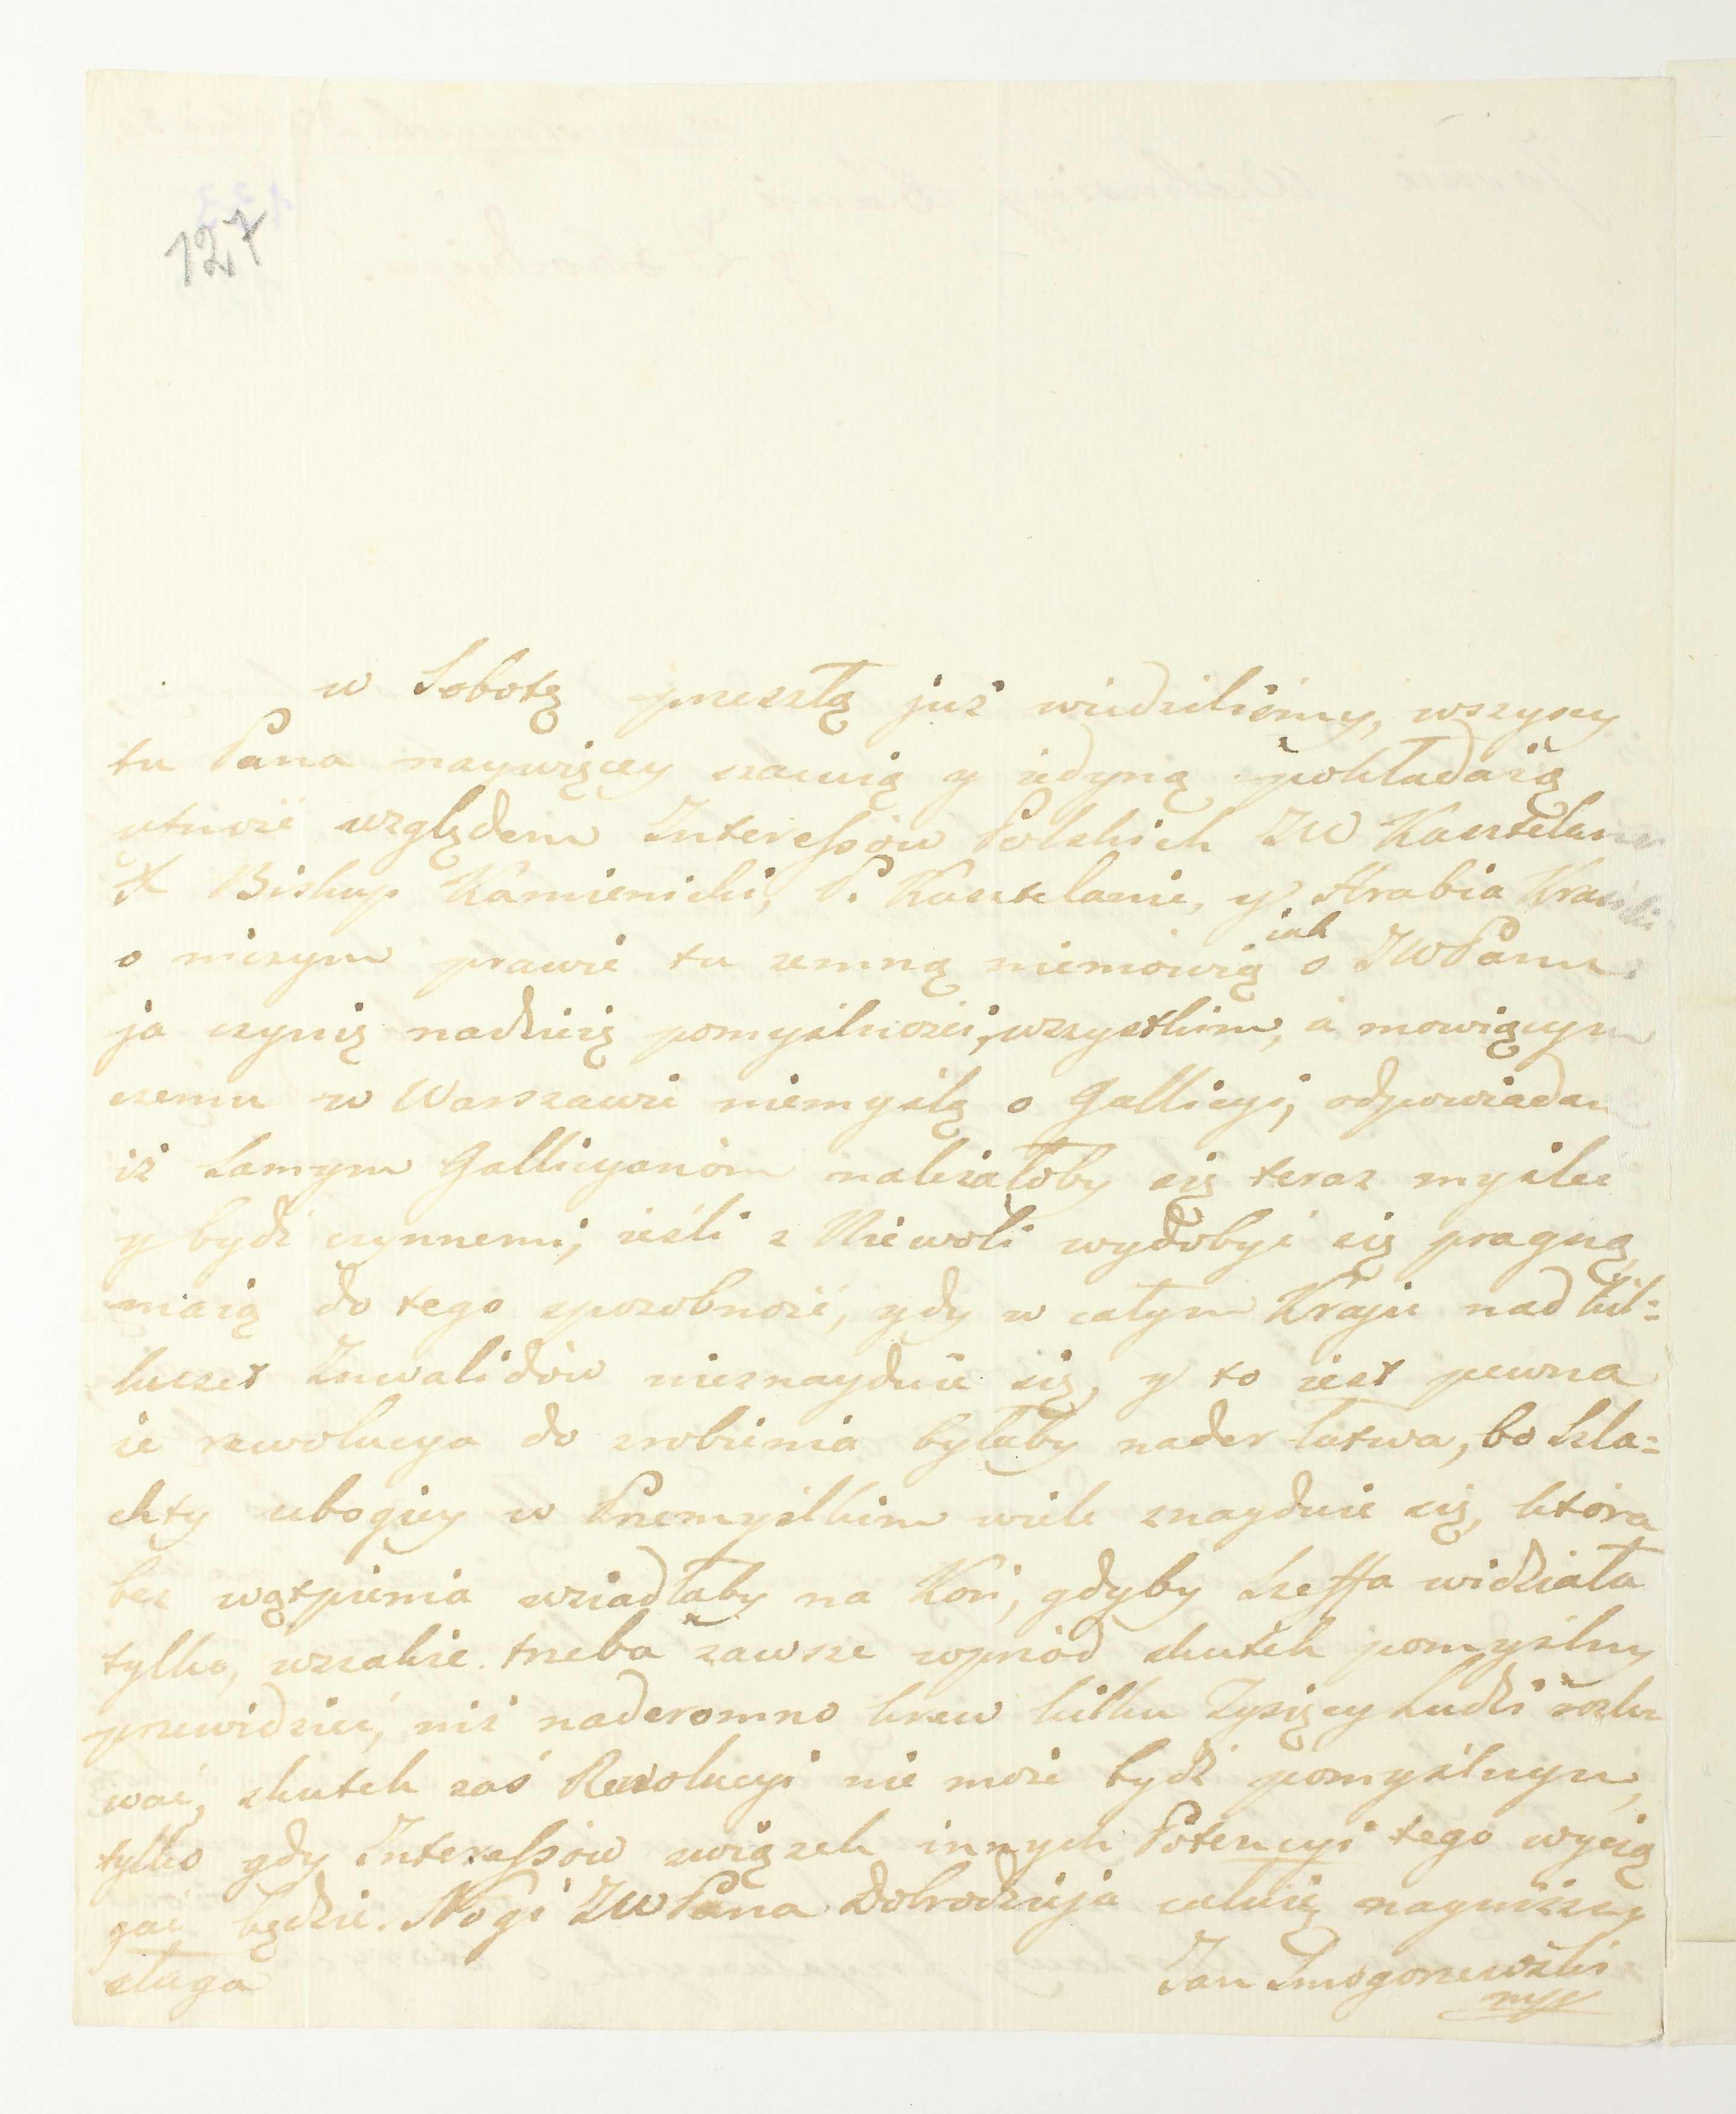 127
w Sobotę przeszłą już wiedzieliśmy, wszyscy
tu Pana naywięcey szacuią y iedyną pokładaią
ufność względem Interessów Polskich JW Kasztelan
X Biskup Kamieniecki, P. Kasztelanic, y Hrabia Krasicki
o niczym prawie tu zemną niemówią iak o JWPanu.
ja czynię nadzieię pomyślności, wszystkim, a mowiącym
czemu w Warszawie niemyślą o Gallicyi, odpowiadam
iż Samym Gallicyanóm należałoby się teraz myśleć
y bydź czynnemi, ieśli z Niewoli wydobyć się pragną
maią do tego sposobność, gdy w całym Kraju nad kil=
kuset Inwalidów nieznayduie się, y to iest pewna
że rewolucya do zrobienia byłaby nader łatwa, bo Szla=
chty ubogiey w Przemyślkim wiele znayduie się, która
bez wątpienia wsiadłaby na Koń, gdyby Szeffa widziała
tylko, wszakże trzeba zawsze wprzód skutek pomyślny
przewidzieć, niż nadaremno krew kilku Tysięcy Ludzi rozle
wać, skutek zaś Rewolucyi nie może bydź pomyślnym,
tylko gdy Interessów związek innych Potencyi tego wycią
gać będzie. Nogi JWPana Dobrodzieja całuię nayniższy
sługa Jan Smogorzewski
mpp